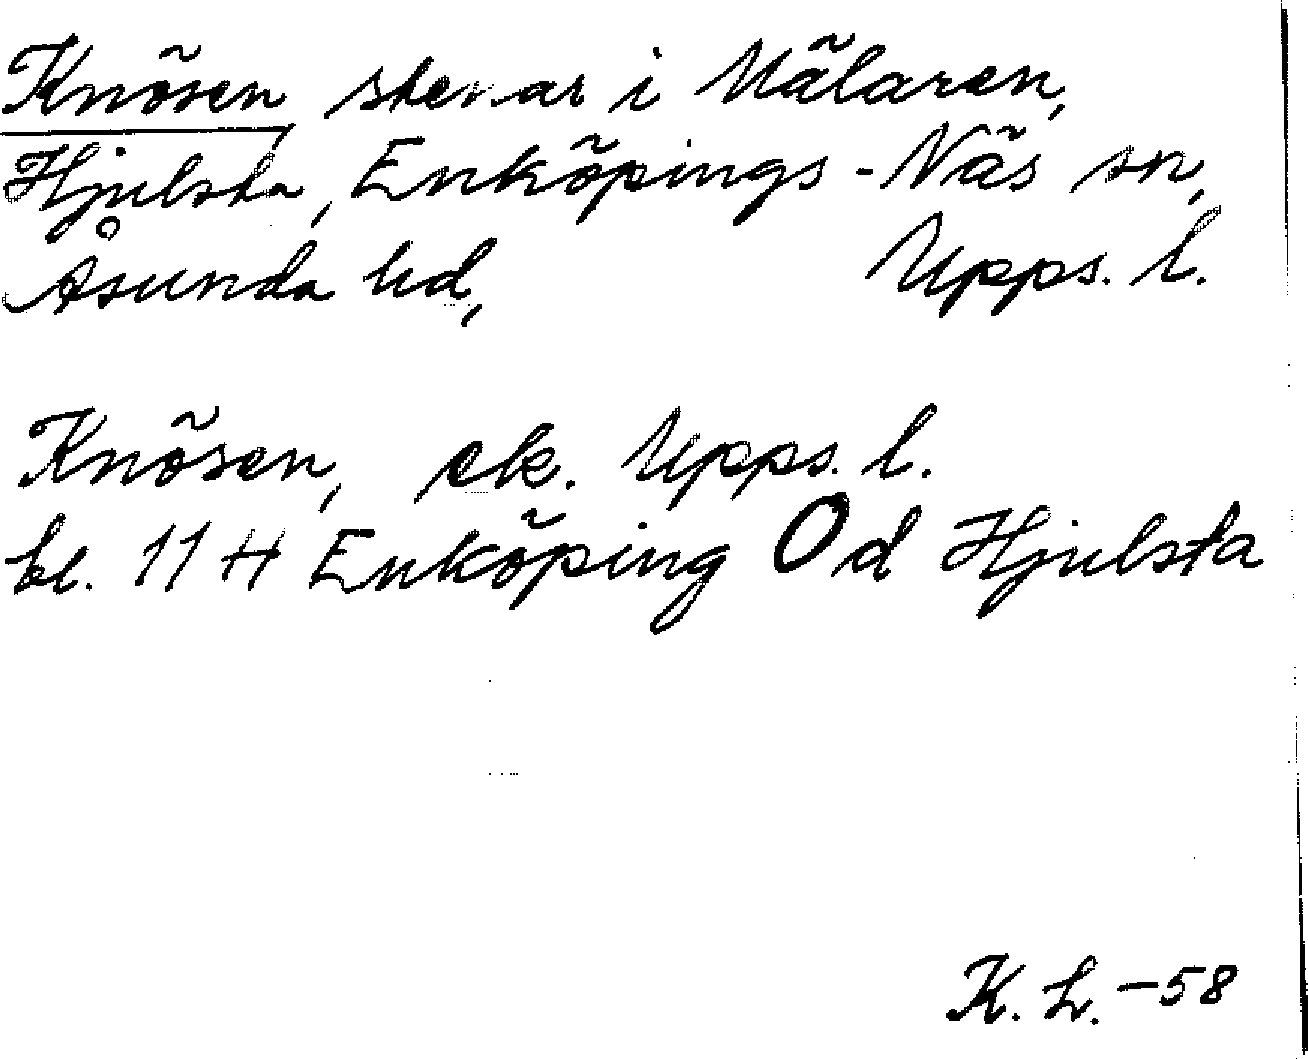 Knösen, stenar i Mälaren,
Hjulsta, Enköpings-Näs sn,
Åsunda hd, Upps. l.
Knösen, ek. Upps. l.
bl. 11 H Enköping 0 d Hjulsta
K. L. -58